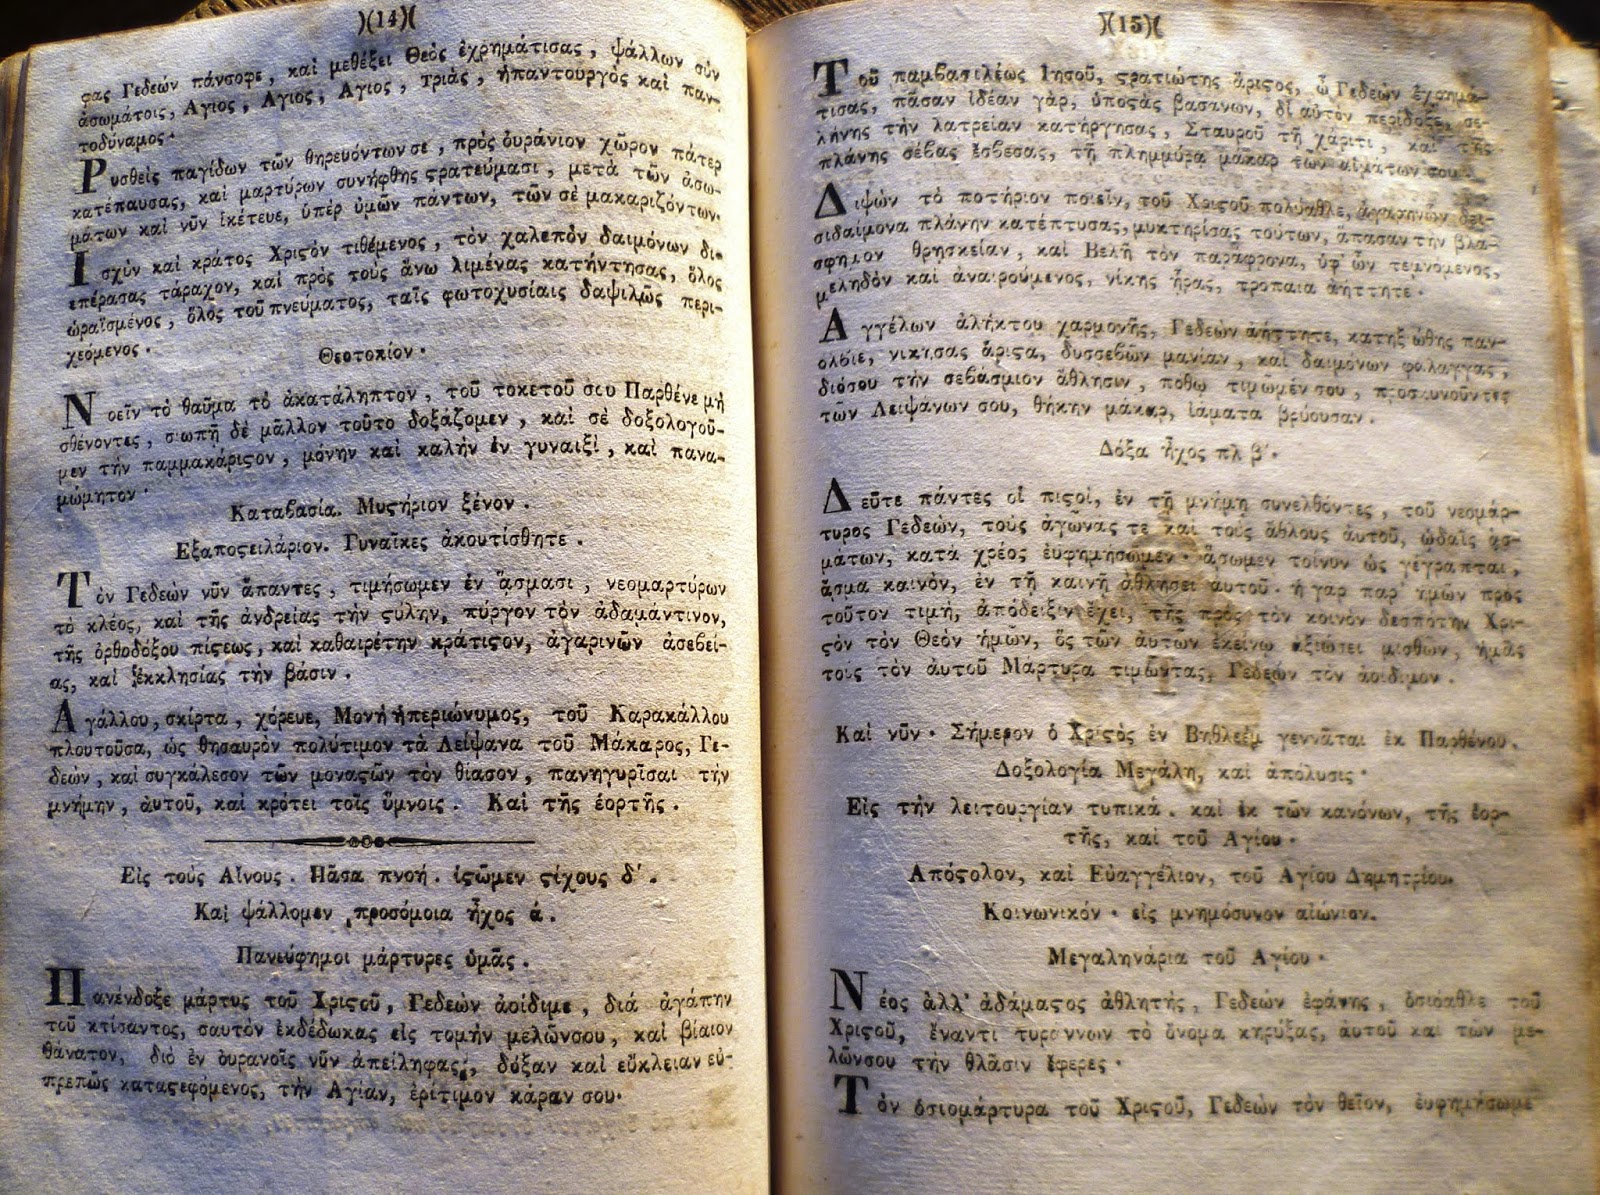 )(14)(
ϛας Γεδεὼν πάνσοφε, καὶ μεθέξει Θεὸς ἐχρημάτισας, ψάλλων σὺν
ἀσωμάτοις, Αγιος, Αγιος, Αγιος, τριὰς, ἡ παντουργὸς καὶ παν-
τοδύναμος.
Ρυσθεὶς παγίδων τῶν θηρευόντων σε, πρὸς ὀυράνιον χῶρον πάτερ
κατέπαυσας, καὶ μαρτύρων συνήφθης ϛρατεύμασι, μετὰ τῶν ἀσω-
μάτων καὶ νῦν ἱκέτευε, ὑπὲρ ὑμῶν πάντων, τῶν σὲ μακαριζόντων.
Ισχὺν καὶ κράτος Χριϛὸν τιθέμενος, τὸν χαλεπὸν δαιμόνων δι-
επέρασας τάραχον, καὶ πρὸς τοὺς ἄνω λιμένας κατήντησας, ὅλος
ὡραϊσμένος, ὅλος τοῦ πνεύματος, ταῖς φωτοχυσίαις δαψιλῶς περι-
χεόμενος.
Θεοτοκίον.
Νοεῖν τὸ θαῦμα τὸ ἀκατάληπτον, τοῦ τοκετοῦ σου Παρθένε μὴ
σθένοντες, σιωπῇ δὲ μᾶλλον τοῦτο δοξάζομεν, καὶ σὲ δοξολογοῦ-
μεν τὴν παμμακάριϛον, μόνην καὶ καλὴν ἐν γυναιξὶ, καὶ πανα-
μώμητον.
Καταβασία. Μυϛήριον ξένον.
Εξαποϛειλάριον. Γυναῖκες ἀκουτίσθητε.
Τὸν Γεδεὼν νῦν ἅπαντες, τιμήσωμεν ἐν ᾄσμασι, νεομαρτύρων
τὸ κλέος, καὶ τῆς ἀνδρείας τὴν ϛύλην, πύργον τὸν ἀδαμάντινον,
τῆς ὀρθοδόξου πίϛεως, καὶ καθαιρέτην κράτιϛον, ἀγαρινῶν ἀσεβεί-
ας, καὶ ἐκκλησίας τὴν βάσιν.
Αγάλλου, σκίρτα, χόρευε, Μονὴ ἡ περιώνυμος, τοῦ Καρακάλλου
πλουτοῦσα, ὡς θησαυρὸν πολύτιμον τὰ Λείψανα τοῦ Μάκαρος, Γε-
δεὼν, καὶ συγκάλεσον τῶν μοναϛῶν τὸν θίασον, πανηγυρῖσαι τὴν
μνήμην, ἀυτοῦ, καὶ κρότει τοῖς ὕμνοις. Καὶ τῆς ἑορτῆς.
Εἰς τοὺς Αἴνους. Πᾶσα πνοή. ἱϛῶμεν ϛίχους δ'.
Καὶ ψάλλομεν προσόμοια ἦχος ά.
Πανεύφημοι μάρτυρες ὑμᾶς.
Πανένδοξε μάρτυς τοῦ Χριϛοῦ, Γεδεὼν ἀοίδιμε, διά ἀγάπην
τοῦ κτίσαντος, σαυτὸν ἐκδέδωκας εἰς τομὴν μελῶν σου, καὶ βίαιον
θάνατον, διὸ ἐν ὀυρανοῖς νῦν ἀπείληφας, δόξαν καὶ εὔκλειαν εὐ-
πρεπῶς καταϛεφόμενος, τὴν Αγίαν, ἐρίτιμον κάραν σου.
)(15)(
Τοῦ παμβασιλέως Ιησοῦ, ϛρατιώτης ἄριϛος, ὦ Γεδεὼν ἐχρημά-
τισας, πᾶσαν ἰδέαν γὰρ, ὑποϛὰς βασάνων, δἰ αὐτὸν περίδοξε, σε-
λήνης τὴν λατρείαν κατήργησας, Σταυροῦ τῇ χάριτι, καὶ τῆς
πλάνης σέβας ἔσβεσας, τῇ πλημμύρᾳ μάκαρ τῶν αἱμάτων σου.
Διψῶν τὸ ποτήριον ποιεῖν, τοῦ Χριϛοῦ πολύαθλε, ἀγαρηνῶν δει-
σιδαίμονα πλάνην κατέπτυσας, μυκτηρίσας τούτων, ἅπασαν τὴν βλά-
σφημον θρησκείαν, καὶ Βελῆ τὸν παράφρονα, ὑφ' ὧν τεμνόμενος,
μεληδὸν καὶ ἀναιρούμενος, νίκης ἦρας, τρόπαια ἀήττητε.
Αγγέλων ἀλήκτου χαρμονῆς, Γεδεὼν ἀήττητε, κατηξιώθης παν-
όλβιε, νικήσας ἄριϛα, δυσσεβῶν μανίαν, καὶ δαιμόνων φάλαγγας,
διόσου τὴν σεβάσμιον ἄθλησιν, πόθῳ τιμῶμέν σου, προσκυνοῦντες
τῶν Λειψάνων σου, θήκην μάκαρ, ἰάματα βρύουσαν.
Δόξα ἦχος πλ β'.
Δεῦτε πάντες οἱ πιϛοὶ, ἐν τῇ μνήμῃ συνελθόντες, τοῦ νεομάρ-
τυρος Γεδεὼν, τοὺς ἀγῶνας τε καὶ τοὺς ἄθλους ἀυτοῦ, ὠδαῖς ᾀσ-
μάτων, κατὰ χρέος ἐυφημήσωμεν. ᾄσωμεν τοίνυν ὡς γέγραπται,
ᾆσμα καινὸν, ἐν τῇ καινῇ ἀθλήσει ἀυτοῦ. ἡ γαρ παρ' ἡμῶν πρὸς
τοῦτον τιμὴ, ἀπόδειξιν ἔχει, τῆς πρὸς τὸν κοινὸν δεσπότην Χρι-
ϛὸν τὸν Θεὸν ἡμῶν, ὃς τῶν ἀυτῶν ἐκείνῳ ἀξιώσει μισθῶν, ἡμᾶς
τοὺς τὸν ἀυτοῦ Μάρτυρα τιμῶντας, Γεδεὼν τὸν ἀοίδιμον.
Καὶ νῦν. Σήμερον ὁ Χριϛὸς ἐν Βηθλεὲμ γεννᾶται ἐκ Παρθένου.
Δοξολογία Μεγάλη, καὶ ἀπόλυσις.
Εἰς τὴν λειτουργίαν τυπικά. καὶ ἐκ τῶν κανόνων, τῆς ἑορ-
τῆς, καὶ τοῦ Αγίου.
Απόϛολον, καὶ Εὐαγγέλιον, τοῦ Αγίου Δημητρίου.
Κοινωνικόν. εἰς μνημόσυνον αἰώνιον.
Μεγαληνάρια τοῦ Αγίου.
Νέος ἀλλ' ἀδάμαϛος ἀθλητὴς, Γεδεὼν ἐφάνης, ὁσιόαθλε τοῦ
Χριϛοῦ, ἔναντι τυράννων τὸ ὄνομα κηρύξας, ἀυτοῦ καὶ τῶν με-
λῶν σου τὴν θλᾶσιν ἔφερες.
Τὸν ὁσιομάρτυρα τοῦ Χριϛοῦ, Γεδεὼν τὸν θεῖον, ἐυφημήσωμε